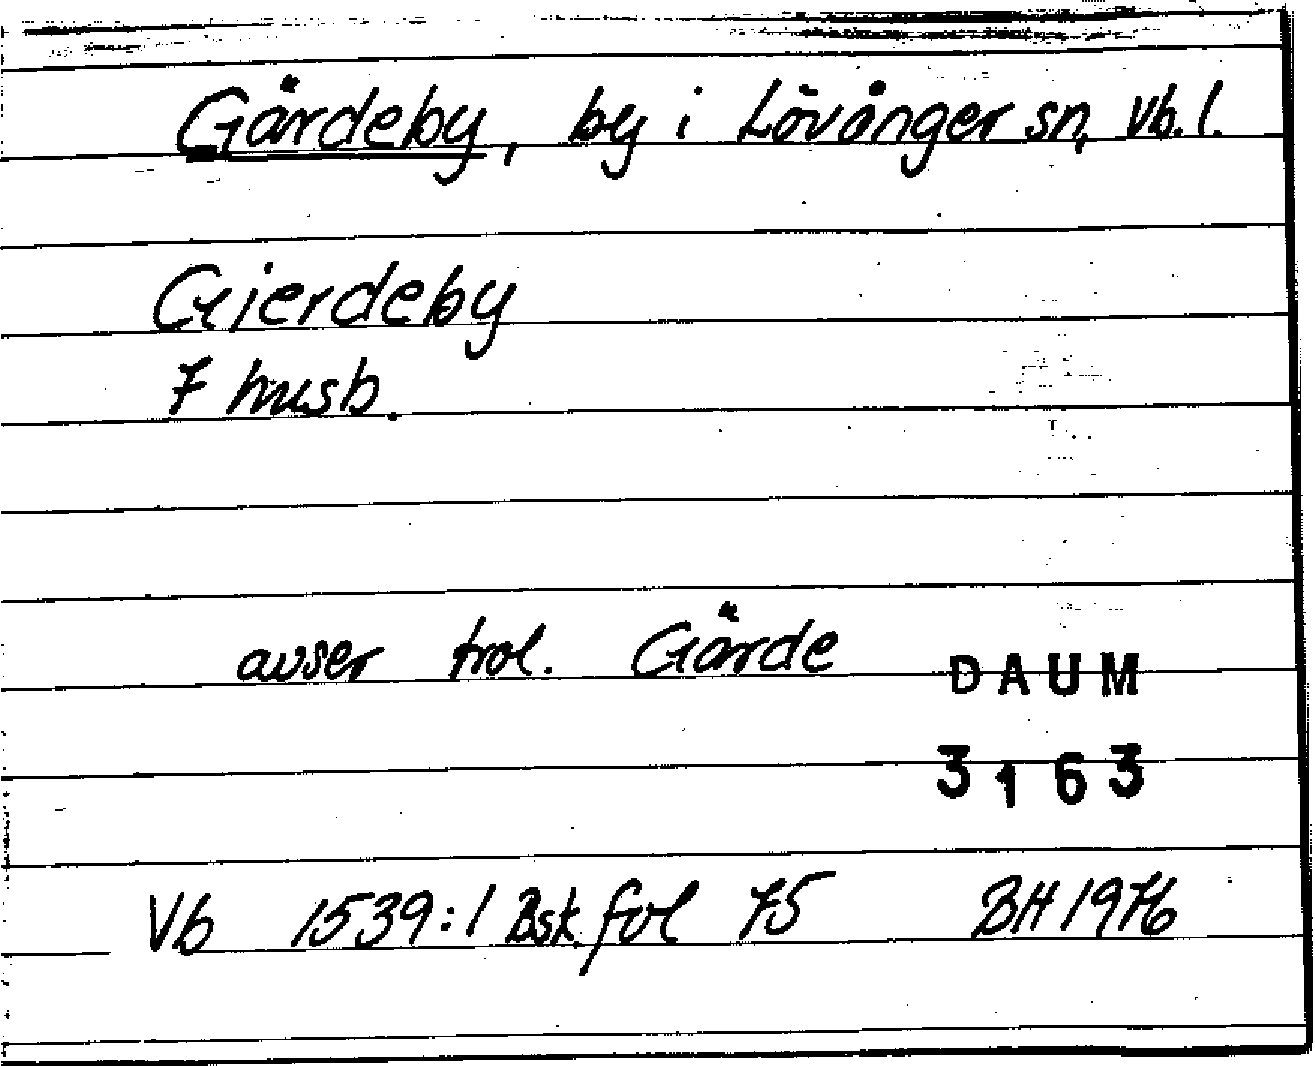 Gärdeby, by i Lövånger sn, Vb. l.
Gierdeby
7 husb.
avser trol. Gärde
DAUM
3163
Vb 1539:1 Bsk. fol 75 BH 1976